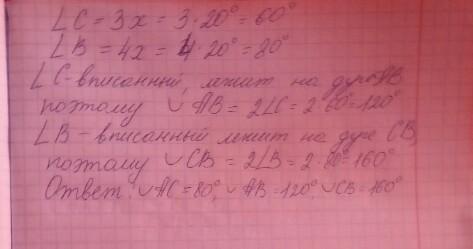 ∠C = 3x = 3·20° = 60°
∠B = 4x = 4·20° = 80°
∠C-вписанный, лежит на дуге AB
поэтому ∪ AB = 2∠C = 2·60°=120°
∠B - вписанный лежит на дуге CB,
поэтому ∪CB = 2∠B = 2·80=160°
Ответ: ∪AC=80°, ∪AB=120°, ∪CB=160°